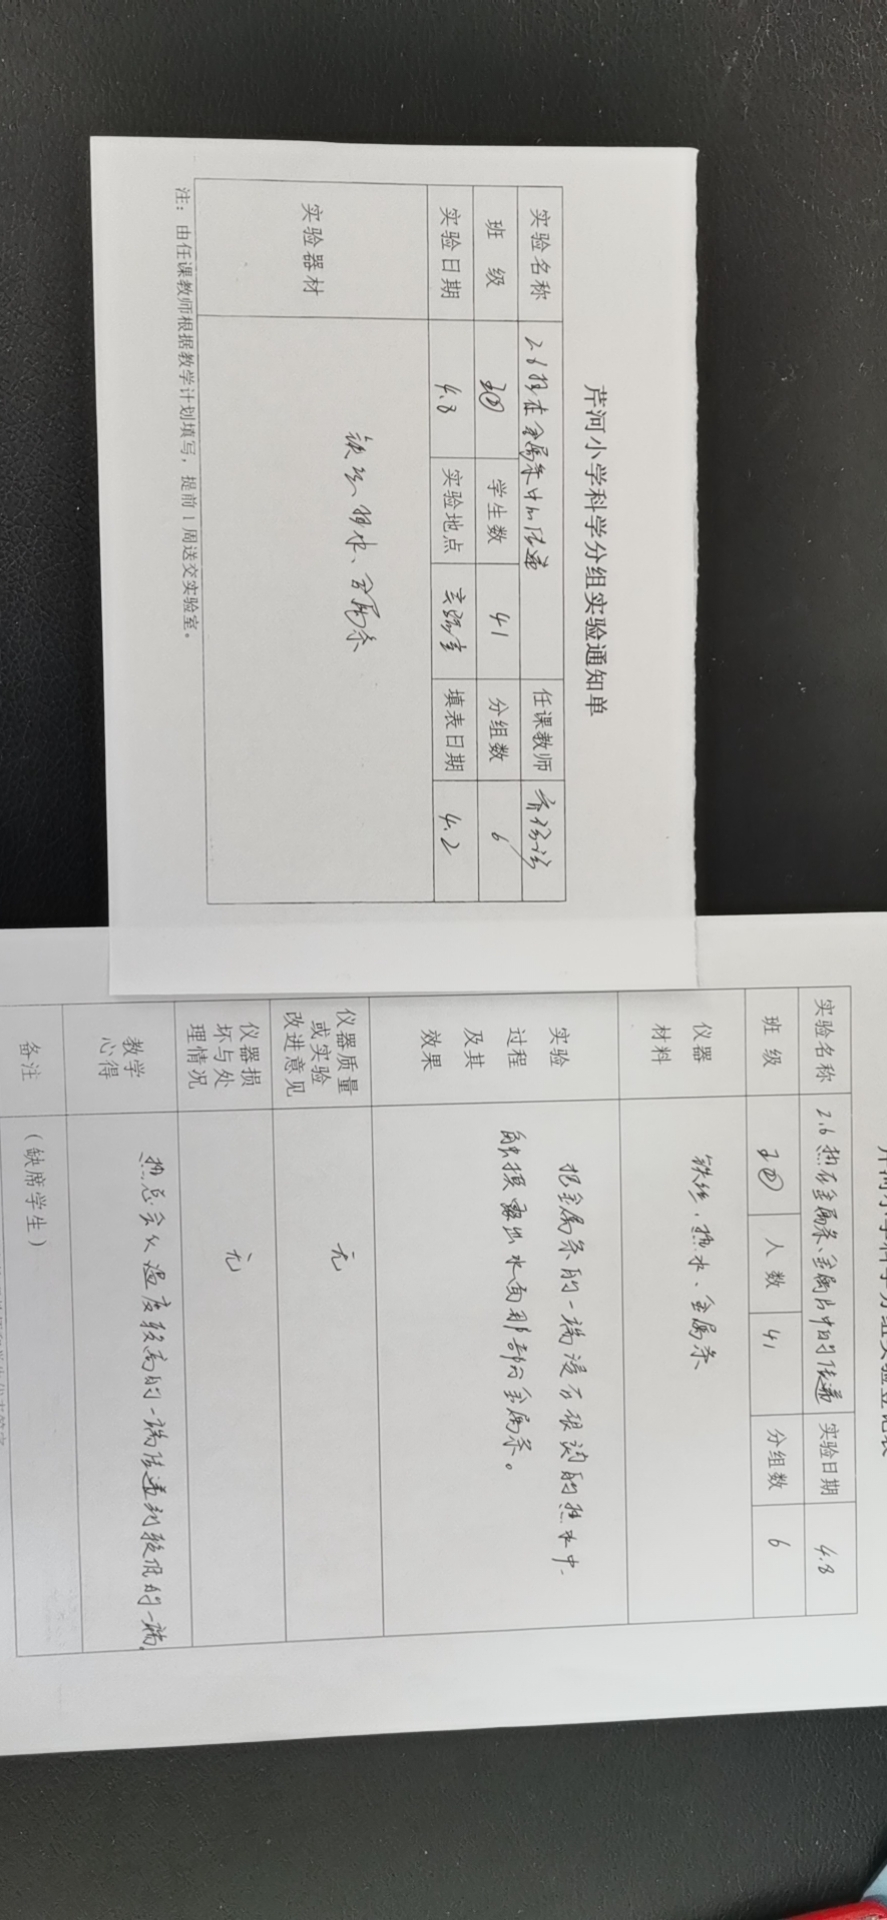 芹河小学科学分组实验通知单
实验名称 2.6热在金属条中的传递 任课教师
班 级 学生数 41 分组数 6
实验日期 4.8 实验地点 实验室 填表日期 4.2
实验器材 铁丝、热水、金属条
注：由任课教师根据教学计划填写，提前1周送交实验室。
实验名称 2.6热在金属条、金属片中的传递 实验日期 4.8
班 级 人 数 41 分组数 6
仪器
材料
铁丝、热水、金属条
实验
过程
及其
效果
把金属条的一端浸在很烫的热水中.
触摸露出水面那部分金属条。
仪器质量
或实验
改进意见
无
仪器损
坏与处
理情况
无
教学
心得
热总会从温度较高的一端传递到较低的一端.
备注
（缺席学生）